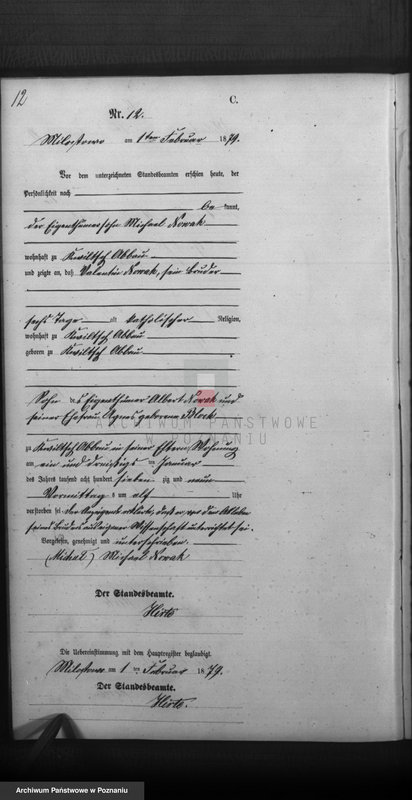 12
C.
Nr. 12.
Milostowo am 1ten Februar 1879.
Vor dem unterzeichneten Standesbeamten erschien heute, der
Persönlichkeit nach
be kannt,
der Eigenthümersohn Michael Nowak
wohnhaft zu Kwiltsch Abbau
und zeigte an, daß Valentin Nowak, sein Bruder
sechs Tage alt katholischer Religion,
wohnhaft zu Kwiltsch Abbau
geboren zu Kwiltsch Abbau
Sohn des Eigenthümer Albert Nowak und
seiner Ehefrau Agnes geborene Block
zu Kwiltsch Abbau in seiner Eltern Wohnung
am ein und dreißigs ten Januar
des Jahres tausend acht hundert sieben zig und neun
Vormittag s um elf Uhr
verstorben sei der Anzeigende erklärte, daß er von dem Ableben
seines Bruders aus eigener Wissenschaft unterrichtet sei.
Vorgelesen, genehmigt und unterschrieben
(Michał) Michael Nowak
Der Standesbeamte.
Hirte
Die Uebereinstimmung mit dem Hauptregister beglaubigt.
Milostowo am 1 ten Februar 1879.
Der Standesbeamte.
Hirte.
ARCHIWUM PAŃSTWOWE
W POZNANIU
Archiwum Państwowe w Poznaniu